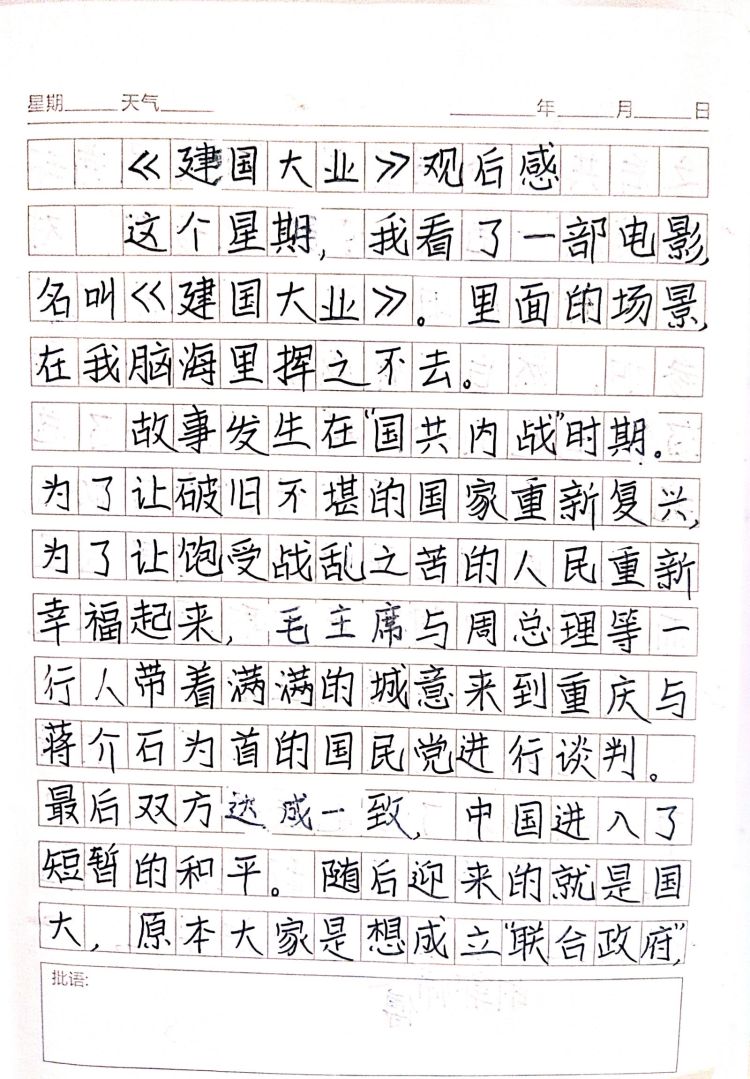 星期 天气 年 月 日
《建国大业》观后感
这个星期，我看了一部电影，
名叫《建国大业》。里面的场景，
在我脑海里挥之不去。
故事发生在“国共内战”时期。
为了让破旧不堪的国家重新复兴，
为了让饱受战乱之苦的人民重新
幸福起来，毛主席与周总理等一
行人带着满满的城意来到重庆与
蒋介石为首的国民党进行谈判。
最后双方达成一致，中国进入了
短暂的和平。随后迎来的就是国
大，原本大家是想成立“联合政府”，
批语: